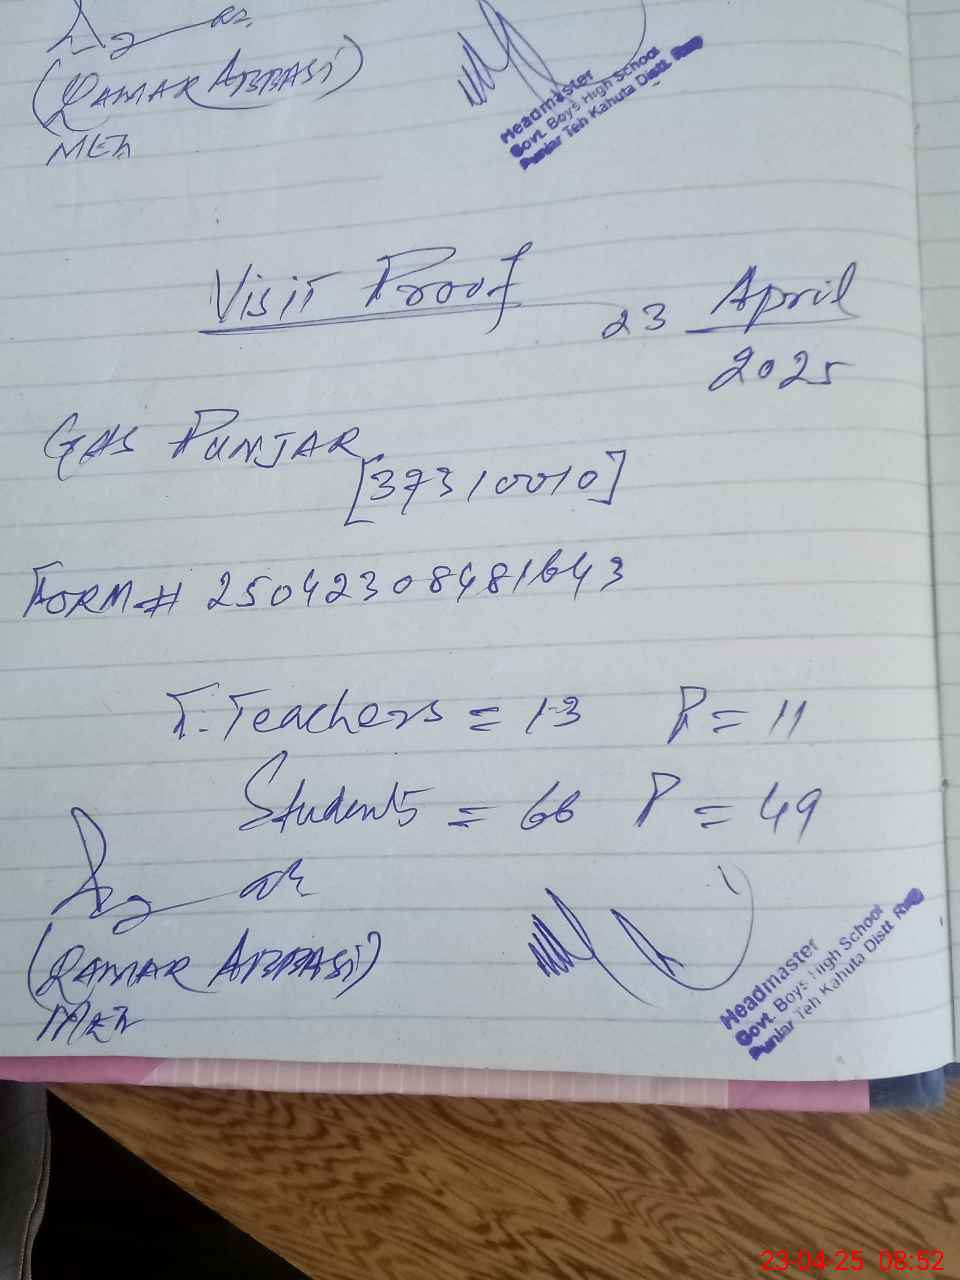 (QAMAR ABBASI)
MEA
Headmaster
Govt. Boys High School
Punjar Teh Kahuta Distt Rwp
Visit Proof
23 April
2025
GHS PUNJAR
[37310010]
FORM# 25042308481643
T. Teachers = 13 P = 11
Students = 66 P = 49
(QAMAR ABBASI)
MEA
Headmaster
Govt. Boys High School
Punjar Teh Kahuta Distt Rwp
23-04-25 08:52